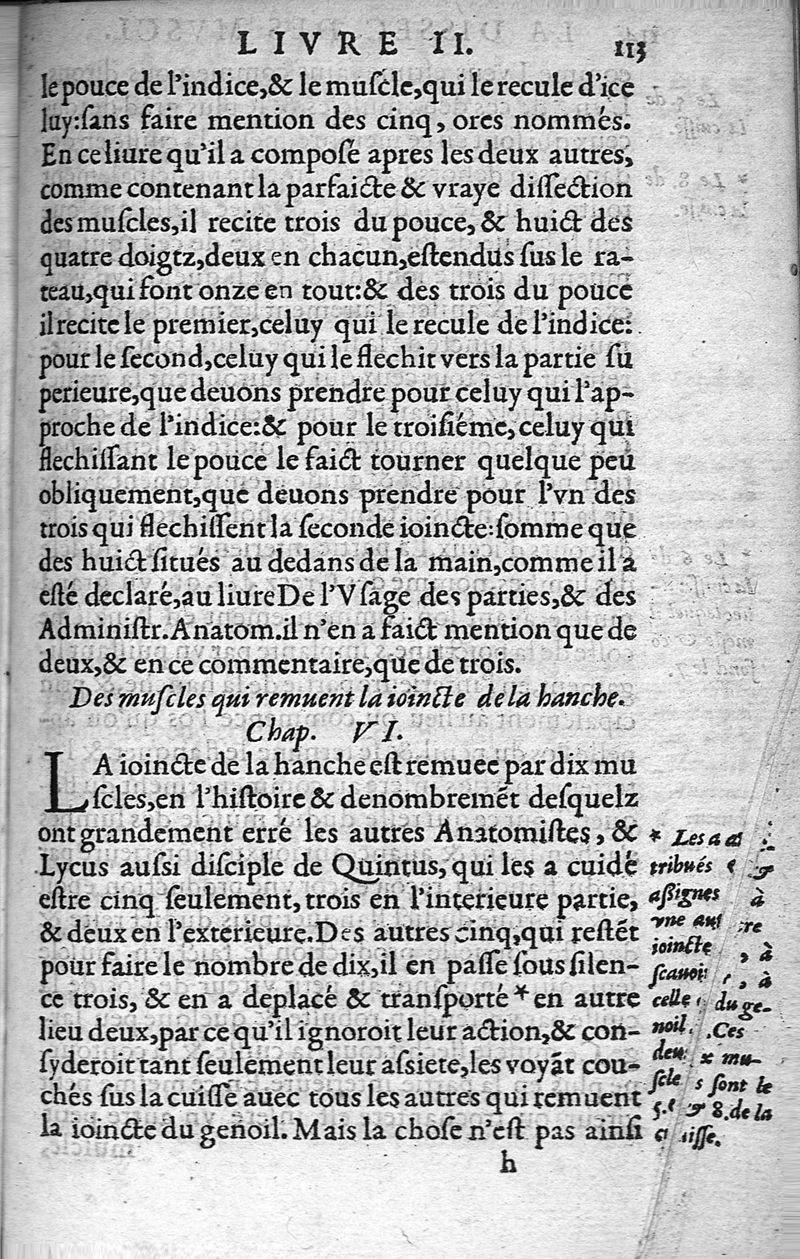 LIVRE II. 113
le pouce de l'indice,& le muſcle,qui le recule d'ice
luy:ſans faire mention des cinq, ores nommés.
En ce liure qu'il a compoſé apres les deux autres,
comme contenant la parfaicte & vraye diſſection
des muſcles,il recite trois du pouce, & huict des
quatre doigtz,deux en chacun,eſtendus ſus le ra-
teau,qui ſont onze en tout:& des trois du pouce
il recite le premier,celuy qui le recule de l'indice:
pour le ſecond,celuy qui le flechit vers la partie ſu
perieure,que deuons prendre pour celuy qui l'ap-
proche de l'indice:& pour le troiſiéme, celuy qui
flechiſſant le pouce le faict tourner quelque peu
obliquement,que deuons prendre pour l'vn des
trois qui flechiſſent la ſeconde ioincte:ſomme que
des huict ſitués au dedans de la main,comme il a
eſté declaré,au liure De l'Vſage des parties,& des
Adminiſtr.Anatom.il n'en a faict mention que de
deux,& en ce commentaire,que de trois.
Des muſcles qui remuent la ioincte de la hanche.
Chap. VI.
LA ioincte de la hanche eſt remuee par dix mu
ſcles,en l'hiſtoire & denombremẽt deſquelz
ont grandement erré les autres Anatomiſtes, &
Lycus auſsi diſciple de Quintus, qui les a cuidé
eſtre cinq ſeulement, trois en l'interieure partie,
& deux en l'exterieure.Des autres cinq,qui reſtẽt
pour faire le nombre de dix,il en paſſe ſous ſilen-
ce trois, & en a deplacé & tranſporté * en autre
lieu deux,par ce qu'il ignoroit leur action,& con-
ſyderoit tant ſeulement leur aſsiete,les voyãt cou-
chés ſus la cuiſſe auec tous les autres qui remuent
la ioincte du genoil. Mais la choſe n'eſt pas ainſi
h
* Les a at
tribués &
aſsignes à
vne autre
ioincte, à
ſcauoir, à
celle du ge-
noil. Ces
deux mu-
ſcles ſont le
5. & 8. de la
cuiſſe.